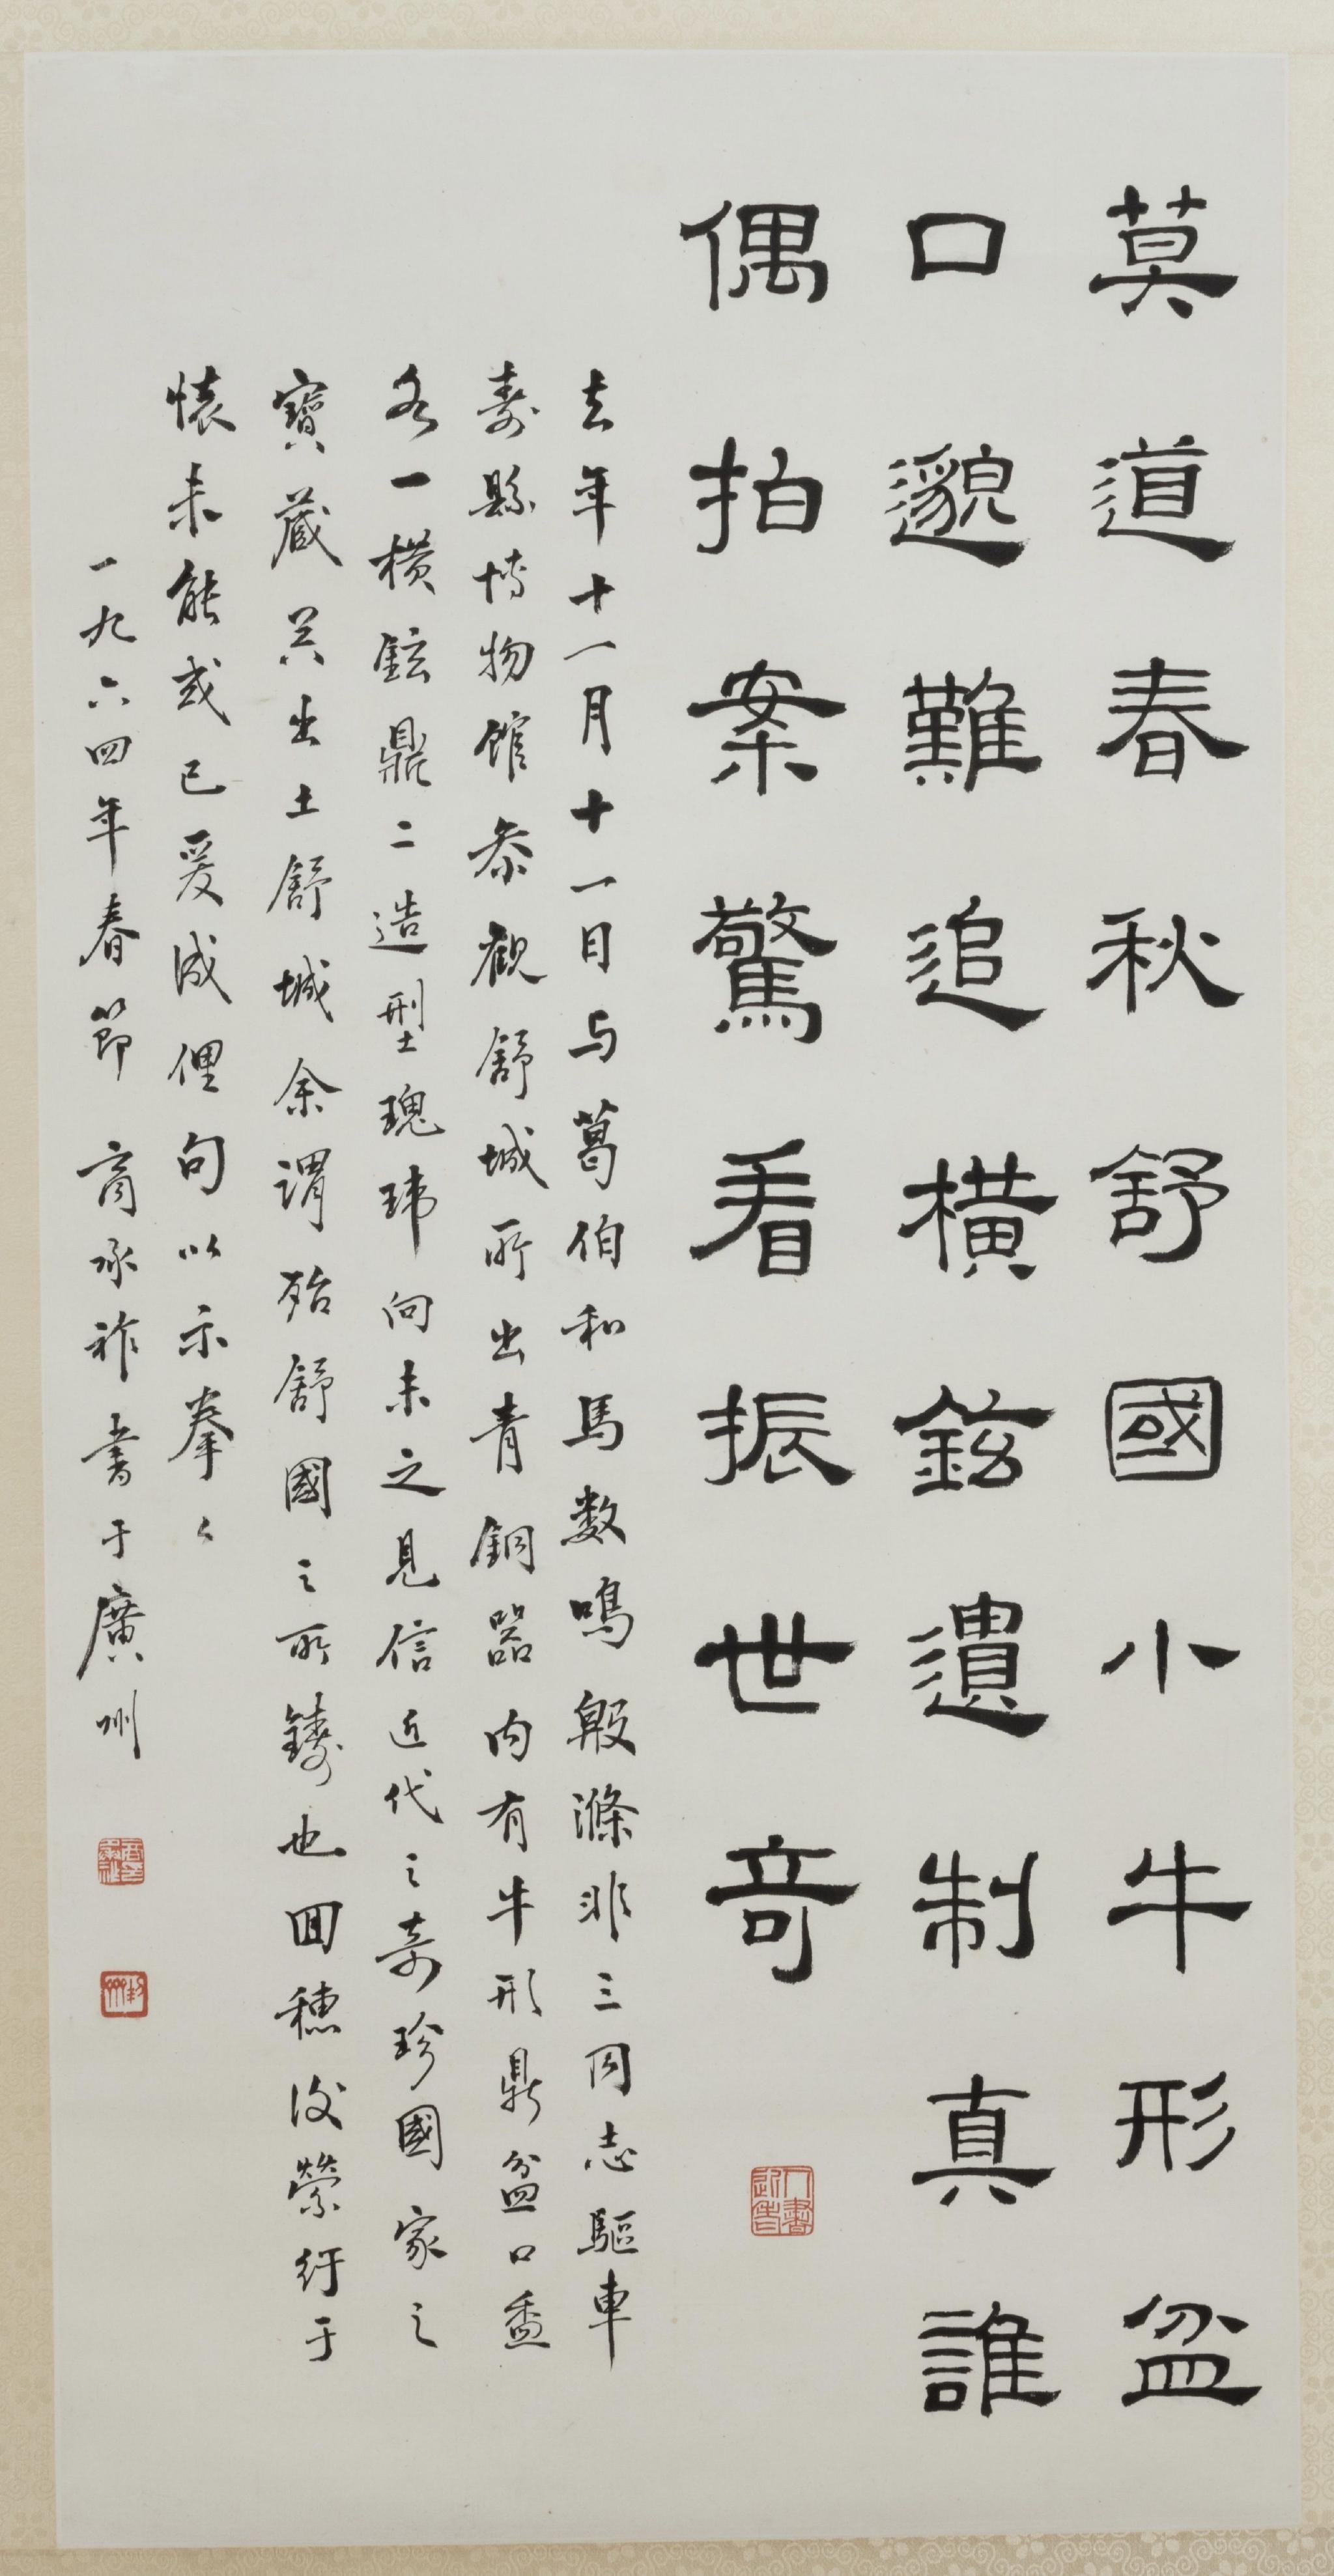 莫道春秋舒國小牛形盆
口邈難追橫鉉遺制真誰
偶拍案驚看振世奇
去年十一月十一日与葛伯和馬数鳴殷滌非三同志驅車
壽縣博物館参觀舒城所出青銅器内有牛形鼎盆口盉
各一横鉉鼎二造型瑰玮向未之見信近代之奇珍國家之
寶藏其出土舒城余謂殆舒國之所鑄也回穗後縈紆于
懷未能或已爰成俚句以示拳〻
一九六四年春節商承祚書于廣州